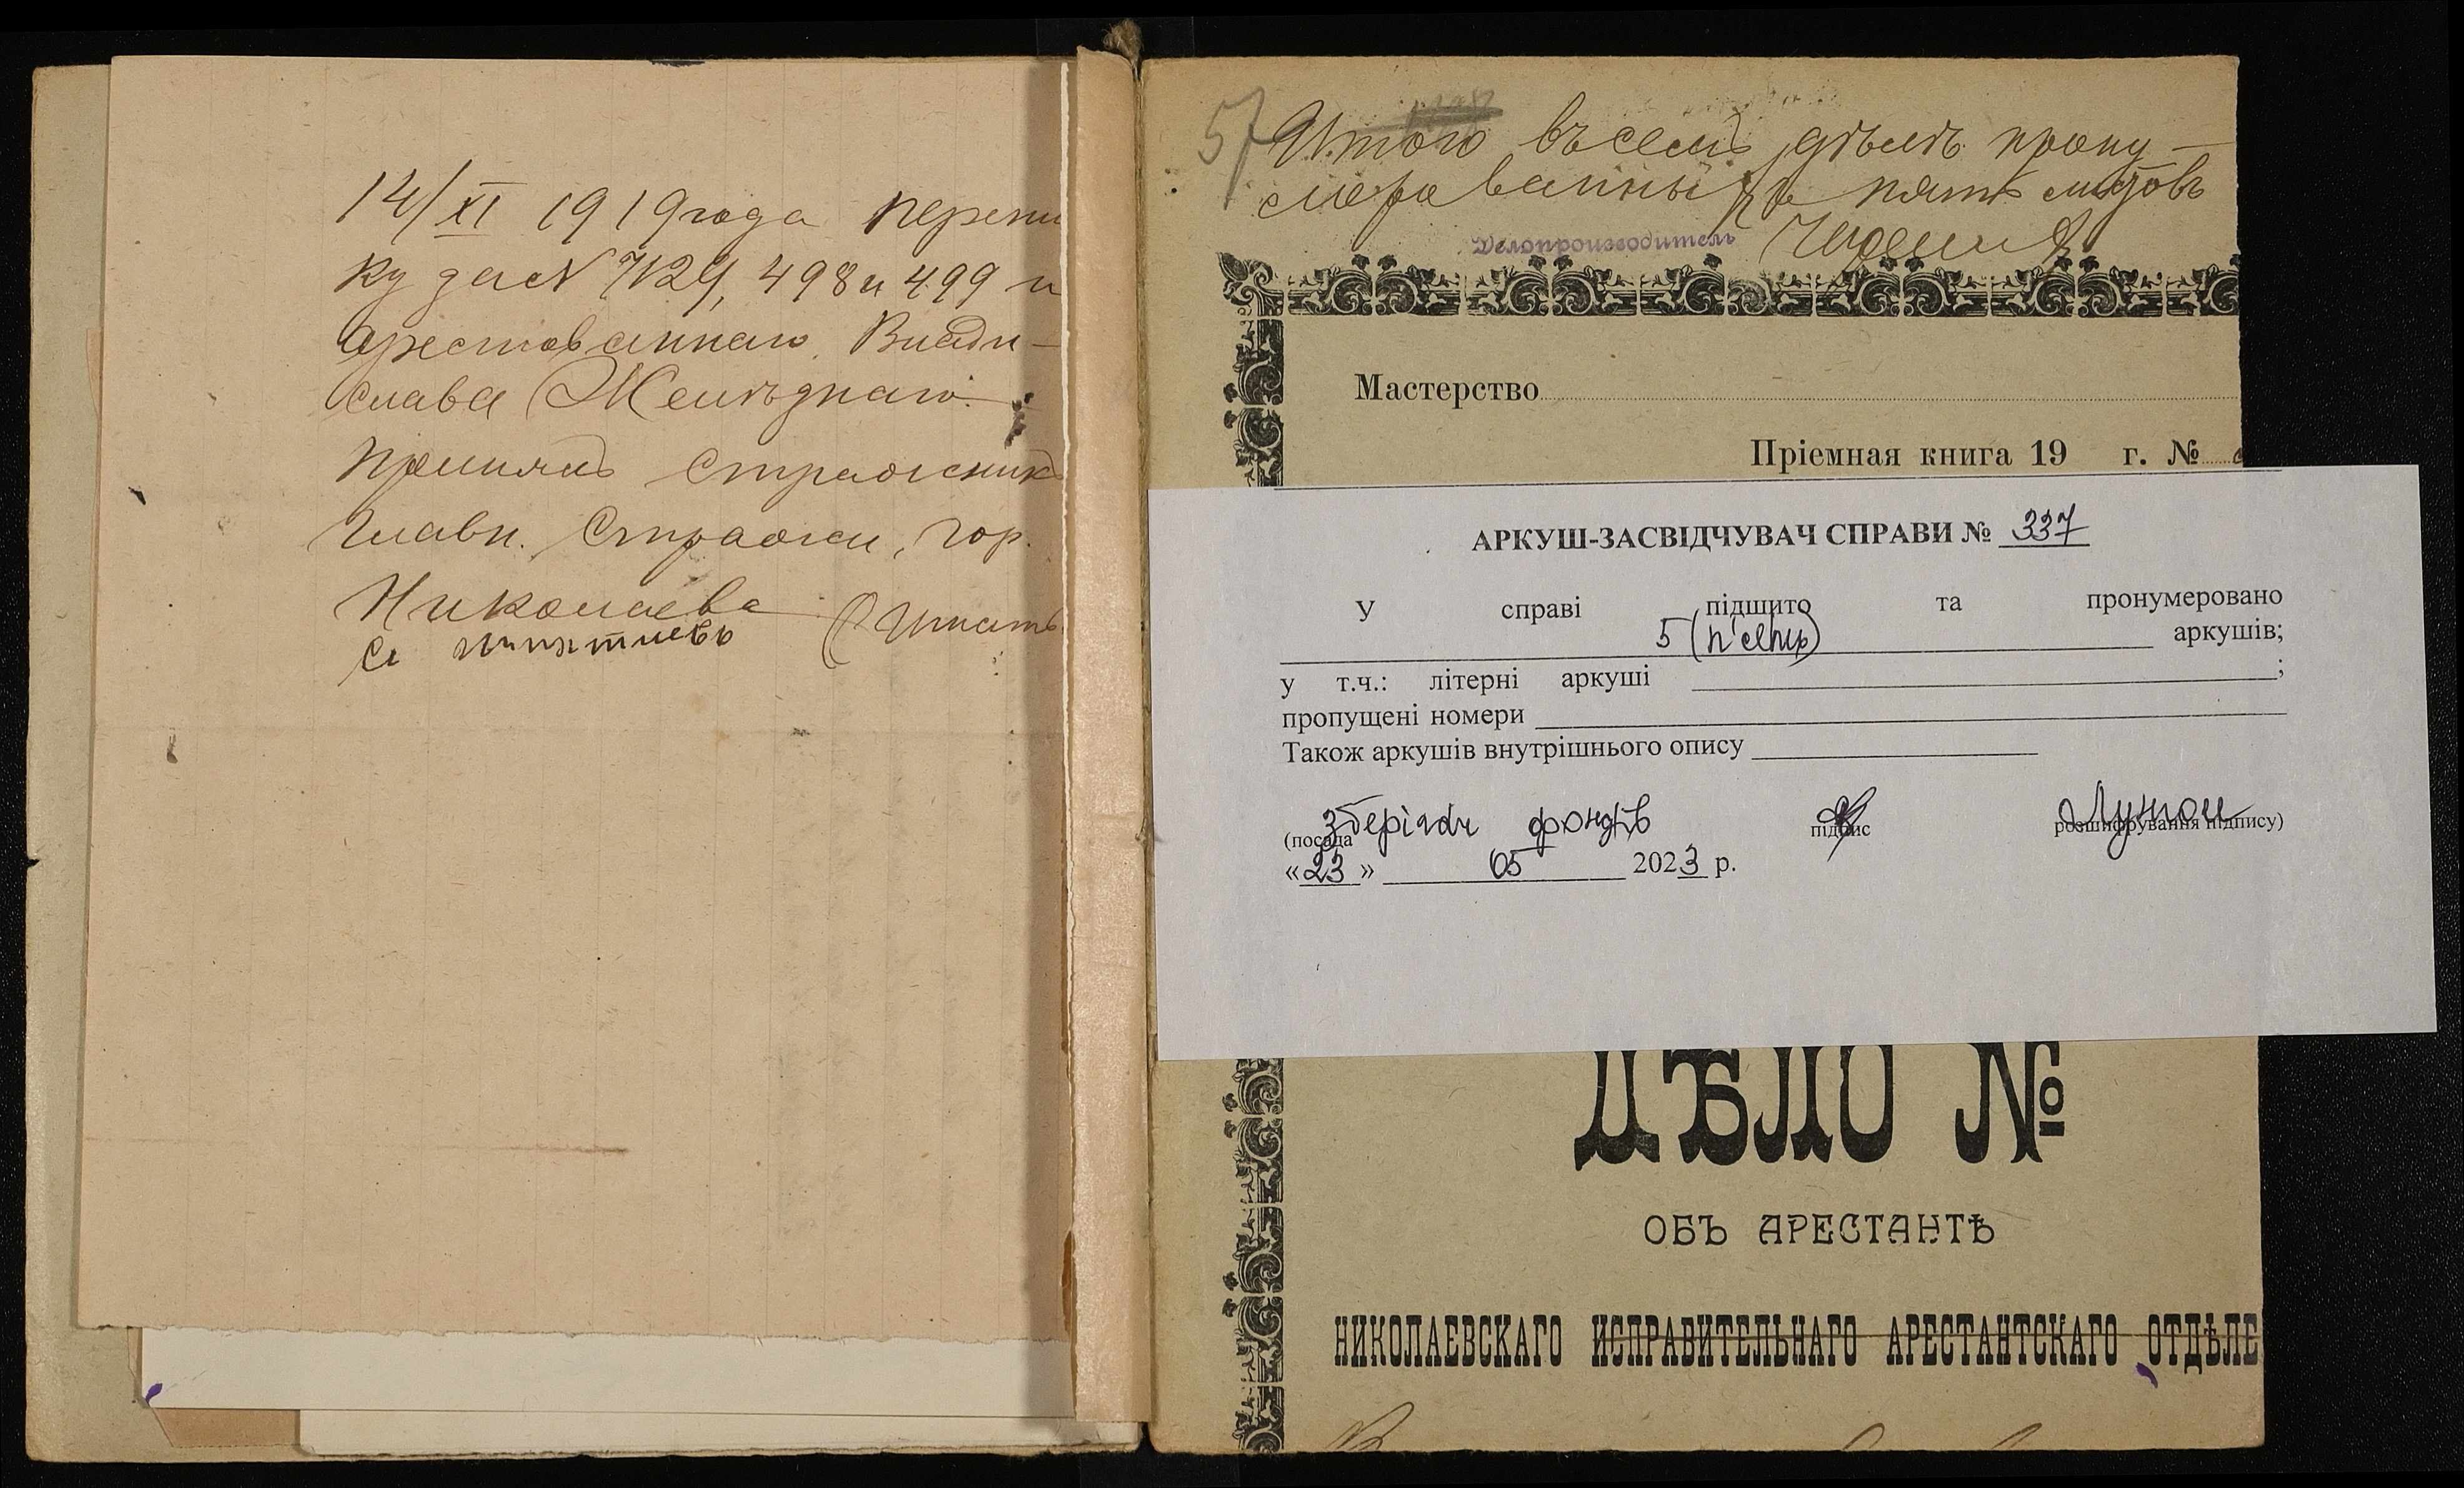 14/XI 1919 года перепи
ку за № 7129, 498 и 499 и
арестованнаго Влади-
слава Желѣзнаго
принялъ Стражник
Главн. Стражи, гор.
Николаева
57 Итого въ семъ дѣлѣ прону-
мерованныхъ пять листовъ
Делопроизводитель
Мастерство
Пріемная книга 19 г. №
АРКУШ-ЗАСВІДЧУВАЧ СПРАВИ № 337
У справі підшито та пронумеровано
5 (п'ять) аркушів;
у т.ч.: літерні аркуші ;
пропущені номери
Також аркушів внутрішнього опису
зберігач фондів
(посада підпис розшифрування підпису)
«23» 05 2023 р.
ДѢЛО №
ОБЪ АРЕСТАНТѢ
НИКОЛАЕВСКАГО ИСПРАВИТЕЛЬНАГО АРЕСТАНТСКАГО ОТДѢЛЕ